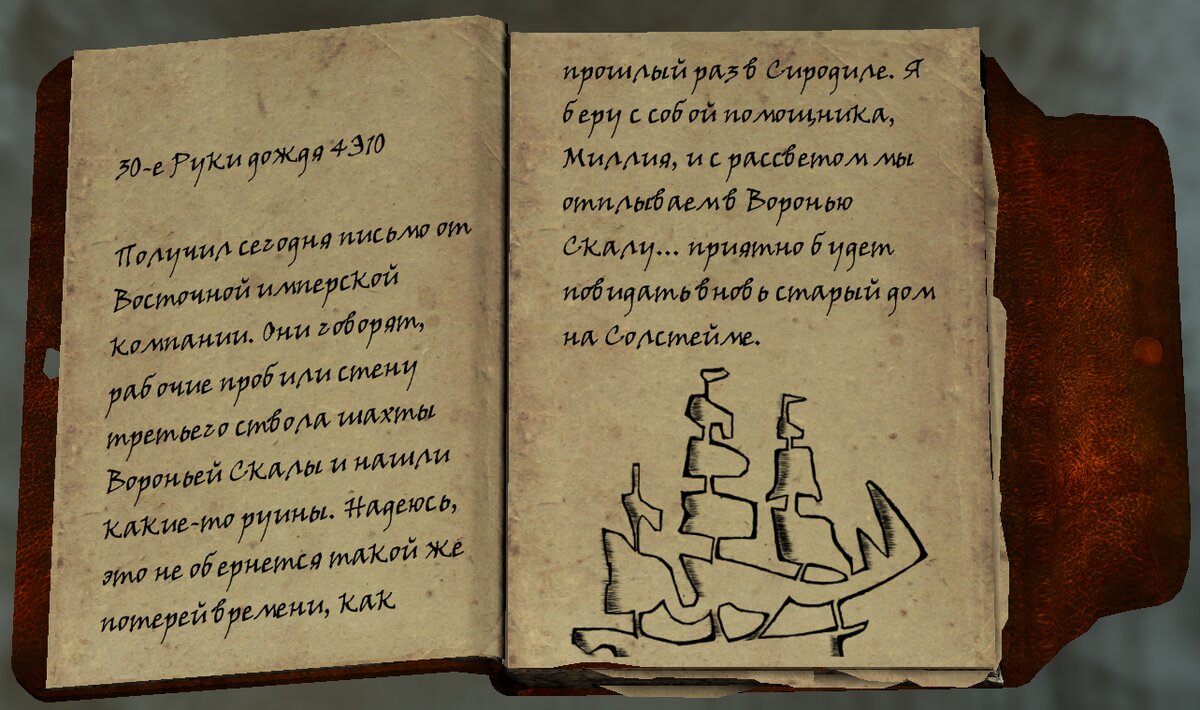 30-е Руки дождя 4Э10
Получил сегодня письмо от
Восточной имперской
компании. Они говорят,
рабочие пробили стену
третьего ствола шахты
Вороньей Скалы и нашли
какие-то руины. Надеюсь,
это не обернется такой же
потерей времени, как
прошлый раз в Сиродиле. Я
беру с собой помощника,
Миллия, и с рассветом мы
отплываем в Воронью
Скалу... приятно будет
повидать вновь старый дом
на Солстейме.